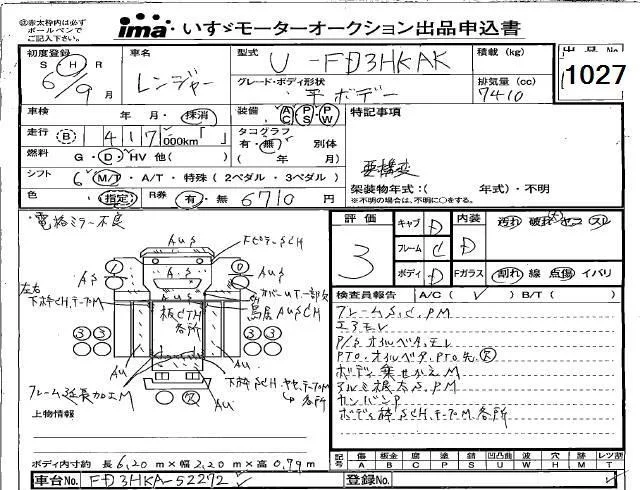 ㊟赤太枠内は必ず
ボールペンで
ご記入下さい。
ima いすゞモーターオークション出品申込書
初度登録 車名 型式 積載 (kg) 出品No.
S・H・R 6/9月 レンジャー U-FD3HKAK 1027
グレード・ボディ形状 排気量 (cc)
平ボデー 7410
車検 年 月・抹消 装備 AC PS PW 特記事項
走行 B 417 000km「 」 タコグラフ
有・無 別体
燃料 G・D・HV 他( ) ( 年 月) 要構変
シフト 6 M/T・A/T・特殊 (2ペダル・3ペダル) 架装物年式：( 年式)・不明
※不明の場合は、不明に○をする。
色 指定 R券 有・無 6710円
・電格ミラー不良
評価 3
キャブ D 内装 D 汚れ 破れ
フレーム C
ボディ D Fガラス 割れ 線 点傷 イバリ
検査員報告 A/C( ✓ ) B/T( )
フレームS.C.PM
エアモレ
P/Sオイルベタ.モレ
P.T.O.オイルベタ.P.T.O.先.欠
ボディ乗せかえM
アルミ根太S.PM
カンバンP
ボディ枠SCH.テープM.各所
AUS
FピラーSCH
AS
AUS
左右
下枠CH.テープM
カバーUT.一部欠
鳥居AUSCH
板CTH
各所
3 3 3 3
AU
AU
フレーム延長加工M
欠
下枠SCH.ヤセ.テープM
各所
上物情報
ボディ内寸約 長6.20m×幅2.20m×高0.79m
記号 傷 板金 腐 塗 錆 凹凸曲 波 穴 跡 レツ割
A B C P S U W H M T
車台No. FD3HKA-52272 登録No.